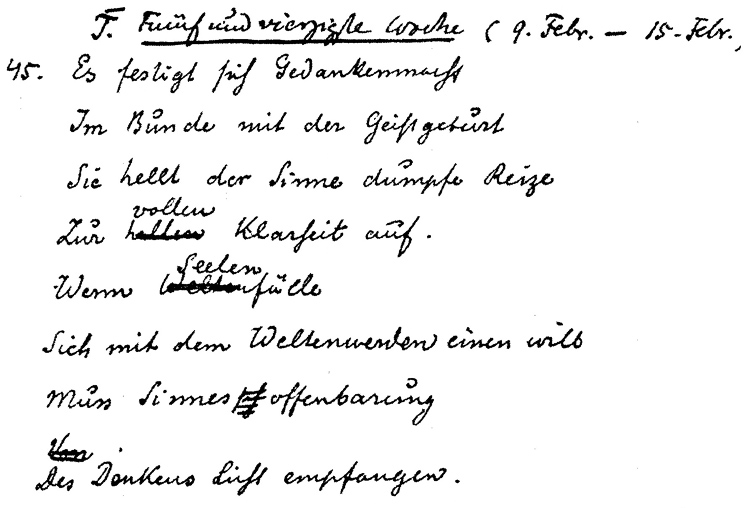 T. Fünfundvierzigste Woche (9. Febr. – 15. Febr.,
45. Es festigt sich Gedankenmacht
Im Bunde mit der Geistgeburt
Sie hellt der Sinne dumpfe Reize
vollen
Zur hellen Klarheit auf.
Seelen
Wenn Weltenfülle
Sich mit dem Weltenwerden einen will
Muss Sinnesoffenbarung
Des Denkens Licht empfangen.